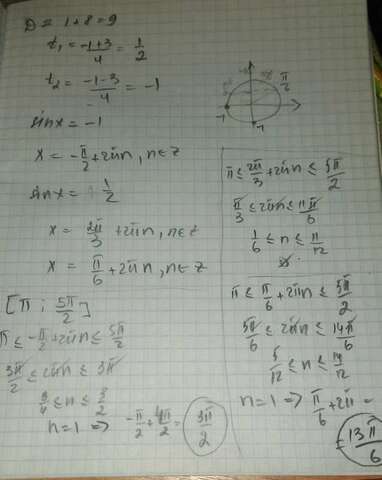 D = 1+8=9
t₁ = (-1+3)/4 = 1/2
t₂ = (-1-3)/4 = -1
sinx = -1
x = -π/2 + 2πn, n∈z
sinx = 1/2
x = 2π/3 + 2πn, n∈z
x = π/6 + 2πn, n∈z
[π ; 5π/2]
π ≤ -π/2 + 2πn ≤ 5π/2
3π/2 ≤ 2πn ≤ 3π
3/4 ≤ n ≤ 3/2
n=1 => -π/2 + 4π/2 = 3π/2
π/6
-1
-1
π ≤ 2π/3 + 2πn ≤ 5π/2
π/3 ≤ 2πn ≤ 11π/6
1/6 ≤ n ≤ 11/12
π ≤ π/6 + 2πn ≤ 5π/2
5π/6 ≤ 2πn ≤ 14π/6
5/12 ≤ n ≤ 14/12
n=1 => π/6 + 2π =
= 13π/6